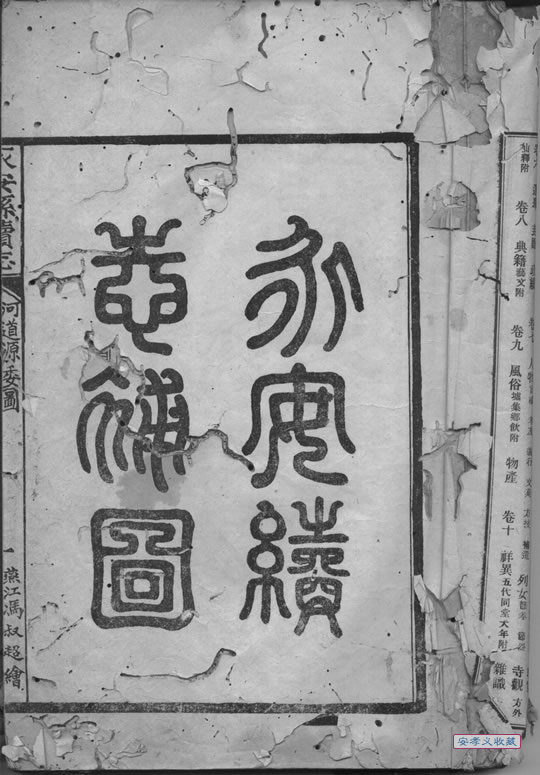 列女
寺觀 方外
仙釋附 卷八 典籍藝文附 卷九 風俗墟集鄉飲附 物產 卷十 祥異五代同堂天年附 雜識
永安續
志補圖
永安縣續志 河道源委圖 一 燕江馮叔超繪
安孝义收藏